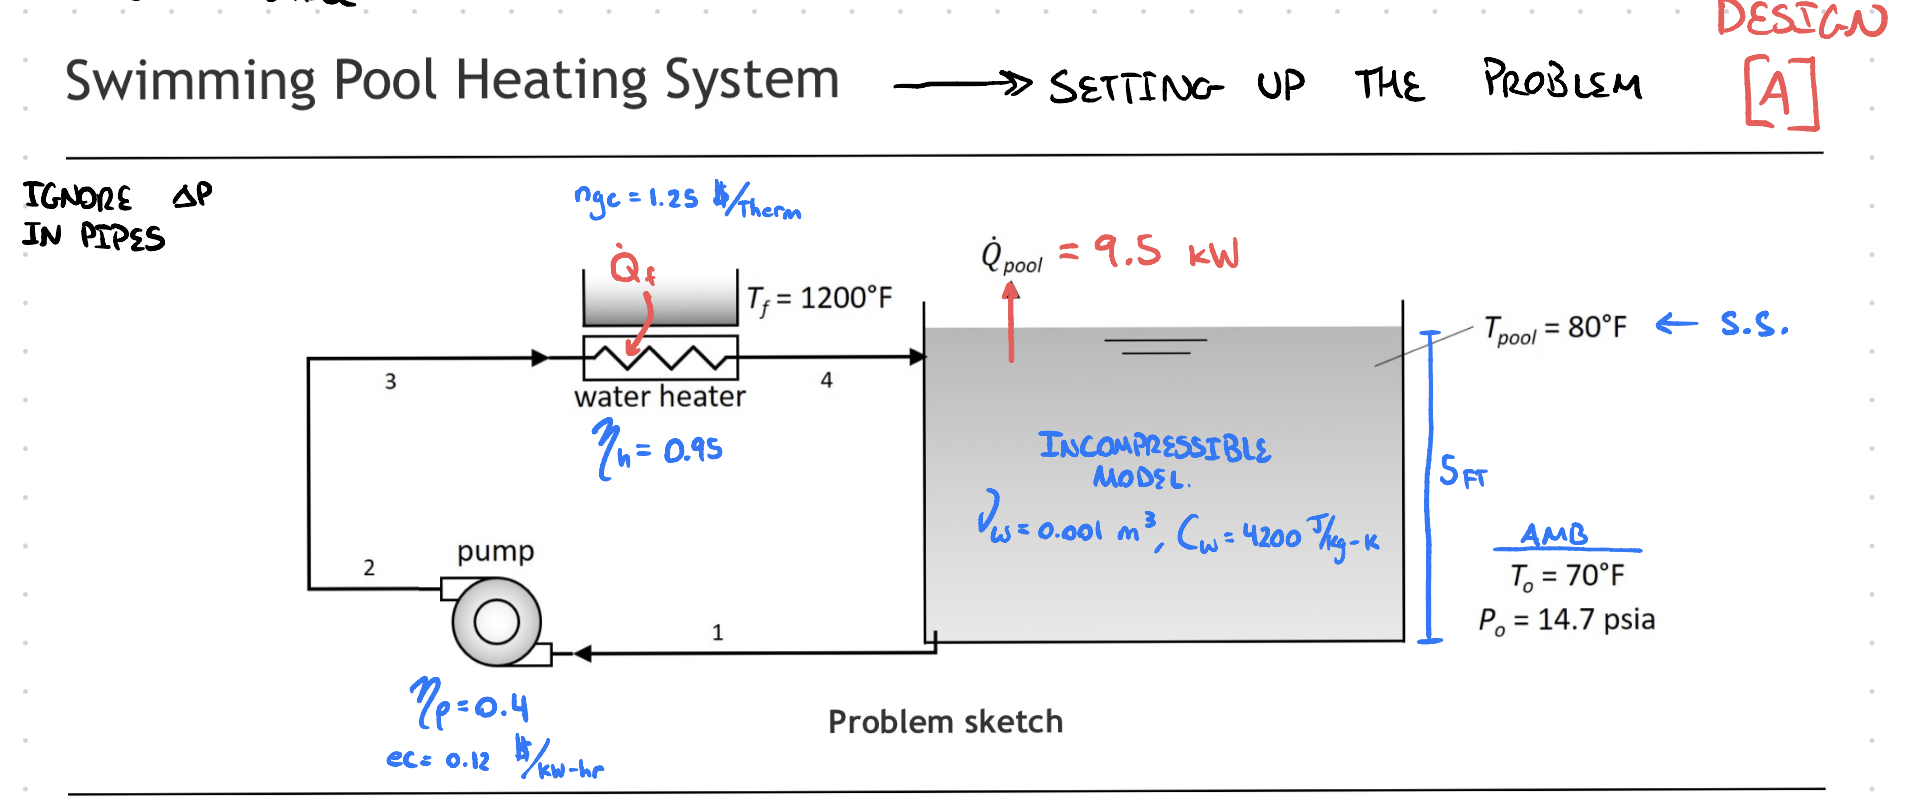 DESIGN
Swimming Pool Heating System → SETTING UP THE PROBLEM [A]
IGNORE ΔP
IN PIPES
ngc = 1.25 $/Therm
Q̇f
Tf = 1200°F
Q̇pool = 9.5 kW
Tpool = 80°F ← S.S.
3
4
water heater
ηh = 0.95
INCOMPRESSIBLE
MODEL.
νw = 0.001 m³, Cw = 4200 J/kg-K
5 FT
AMB
To = 70°F
Po = 14.7 psia
pump
2
1
ηp = 0.4
ec = 0.12 $/kW-hr
Problem sketch